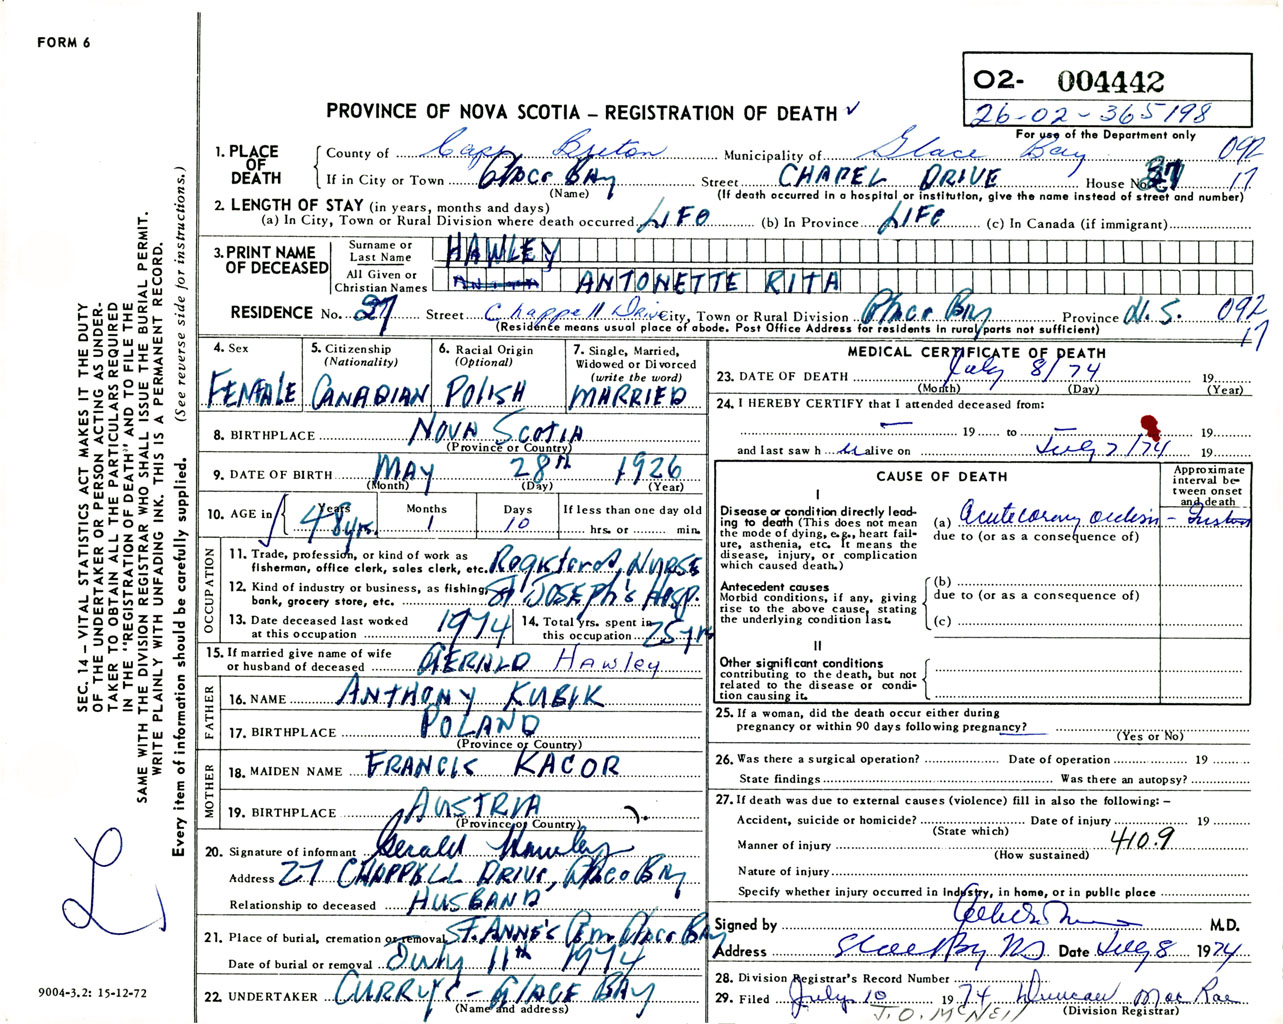 FORM 6
O2- 004442
26-02-365198
For use of the Department only
PROVINCE OF NOVA SCOTIA – REGISTRATION OF DEATH ✓
1. PLACE OF DEATH
County of Cape Breton Municipality of Glace Bay 092
If in City or Town Glace Bay Street CHAPEL DRIVE House No. 27 17
(Name) (If death occurred in a hospital or institution, give the name instead of street and number)
2. LENGTH OF STAY (in years, months and days)
(a) In City, Town or Rural Division where death occurred LIFE (b) In Province LIFE (c) In Canada (if immigrant)
3. PRINT NAME OF DECEASED
Surname or Last Name HAWLEY
All Given or Christian Names ANTONETTE RITA
RESIDENCE No. 27 Street Chappell Drive City, Town or Rural Division Glace Bay Province N.S. 092
17
(Residence means usual place of abode. Post Office Address for residents in rural parts not sufficient)
4. Sex
FEMALE
5. Citizenship
(Nationality)
CANADIAN
6. Racial Origin
(Optional)
POLISH
7. Single, Married,
Widowed or Divorced
(write the word)
MARRIED
8. BIRTHPLACE NOVA SCOTIA
(Province or Country)
9. DATE OF BIRTH MAY 28th 1926
(Month) (Day) (Year)
10. AGE in Years 48 yrs. Months 1 Days 10 If less than one day old
hrs. or min.
OCCUPATION
11. Trade, profession, or kind of work as
fisherman, office clerk, sales clerk, etc. Registered NURSE
12. Kind of industry or business, as fishing,
bank, grocery store, etc. St JOSEPH'S HOSP.
13. Date deceased last worked
at this occupation 1974
14. Total yrs. spent in
this occupation 25 yrs
15. If married give name of wife
or husband of deceased GERALD Hawley
FATHER
16. NAME ANTHONY KUBIK
17. BIRTHPLACE POLAND
(Province or Country)
MOTHER
18. MAIDEN NAME FRANCIS KACOR
19. BIRTHPLACE AUSTRIA
(Province or Country)
20. Signature of informant Gerald Hawley
Address 27 CHAPPELL DRIVE, Glace Bay
Relationship to deceased HUSBAND
21. Place of burial, cremation or removal ST. ANNE'S Cem. Glace Bay
Date of burial or removal July 11th 1974
22. UNDERTAKER CURRY'S - GLACE BAY
(Name and address)
MEDICAL CERTIFICATE OF DEATH
23. DATE OF DEATH July 8/74 19
(Month) (Day) (Year)
24. I HEREBY CERTIFY that I attended deceased from:
— 19 to — 19
and last saw h er alive on July 7/74 19
CAUSE OF DEATH
Approximate interval between onset and death
I
Disease or condition directly leading to death (This does not mean the mode of dying, e.g., heart failure, asthenia, etc. It means the disease, injury, or complication which caused death.)
(a) Acute coronary occlusion - Instant
due to (or as a consequence of)
Antecedent causes
Morbid conditions, if any, giving rise to the above cause, stating the underlying condition last.
(b)
due to (or as a consequence of)
(c)
II
Other significant conditions
contributing to the death, but not
related to the disease or condition causing it.
25. If a woman, did the death occur either during
pregnancy or within 90 days following pregnancy?
(Yes or No)
26. Was there a surgical operation? Date of operation 19
State findings Was there an autopsy?
27. If death was due to external causes (violence) fill in also the following: –
Accident, suicide or homicide? Date of injury 19
(State which)
Manner of injury 410.9
(How sustained)
Nature of injury
Specify whether injury occurred in industry, in home, or in public place
Signed by M.D.
Address Glace Bay NS Date July 8 1974
28. Division Registrar's Record Number
29. Filed July 10 1974 Duncan MacRae
(Division Registrar)
J.O. McNeil
SEC. 14 – VITAL STATISTICS ACT MAKES IT THE DUTY
OF THE UNDERTAKER OR PERSON ACTING AS UNDER-
TAKER TO OBTAIN ALL THE PARTICULARS REQUIRED
IN THE "REGISTRATION OF DEATH" AND TO FILE THE
SAME WITH THE DIVISION REGISTRAR WHO SHALL ISSUE THE BURIAL PERMIT.
WRITE PLAINLY WITH UNFADING INK. THIS IS A PERMANENT RECORD.
Every item of information should be carefully supplied. (See reverse side for instructions.)
9004-3.2: 15-12-72